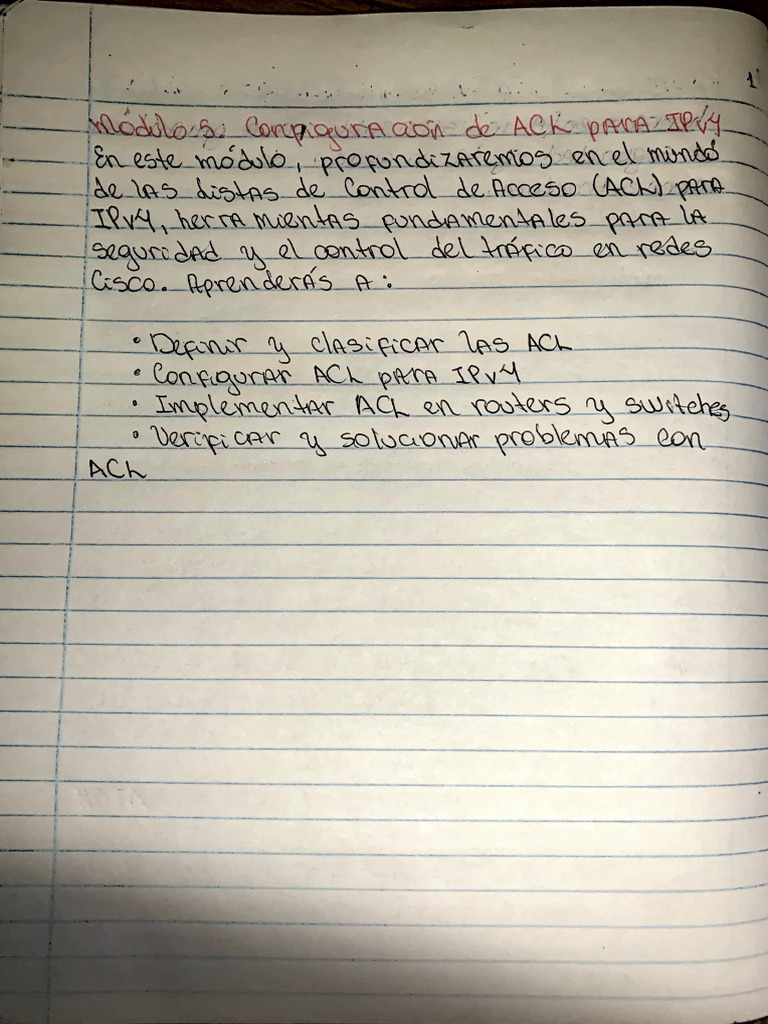 1
Módulo 5. Configuración de ACL para IPv4
En este módulo, profundizaremos en el mundo
de las Listas de Control de Acceso (ACL) para
IPv4, herramientas fundamentales para la
seguridad y el control del tráfico en redes
Cisco. Aprenderás a:
• Definir y clasificar las ACL
• Configurar ACL para IPv4
• Implementar ACL en routers y switches
• Verificar y solucionar problemas con
ACL